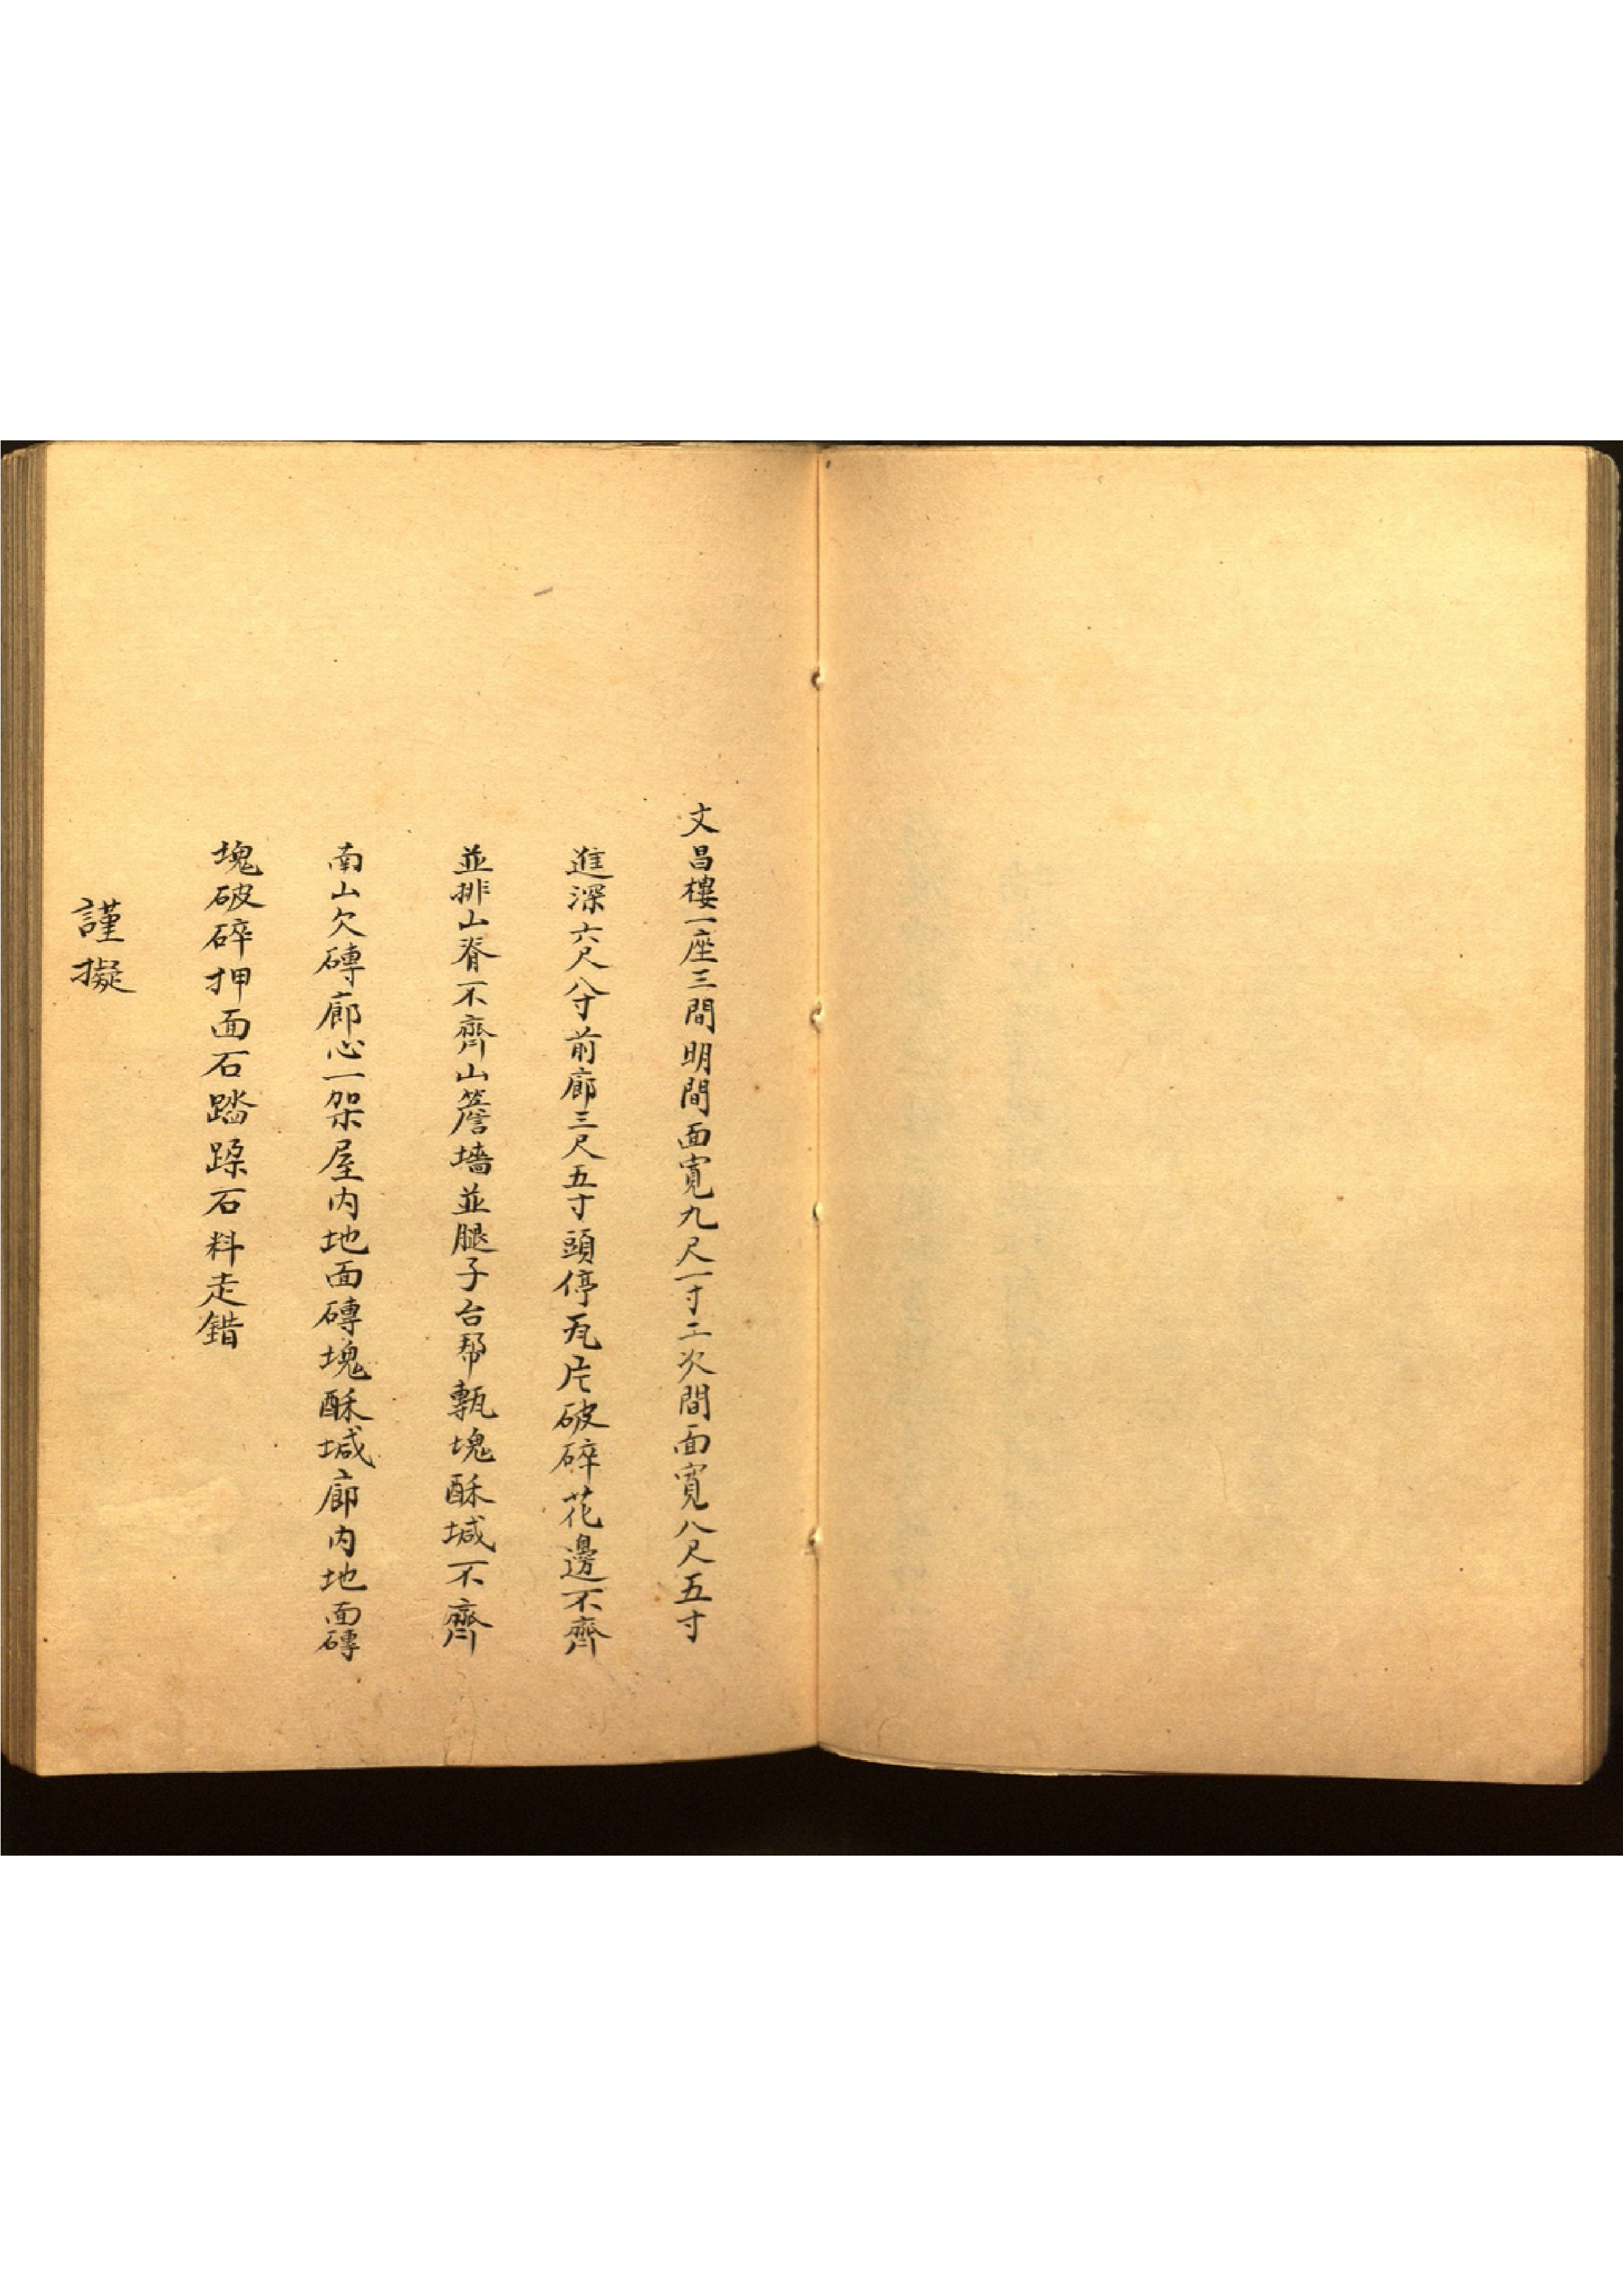 文昌樓一座三間明間面寬九尺一寸二次間面寬八尺五寸
進深六尺八寸前廊三尺五寸頭停瓦片破碎花邊不齊
並排山脊不齊山簷墻並腿子台帮甎塊酥堿不齊
南山欠磚廊心一架屋内地面磚塊酥堿廊内地面磚
塊破碎押面石踏跺石料走錯
謹擬